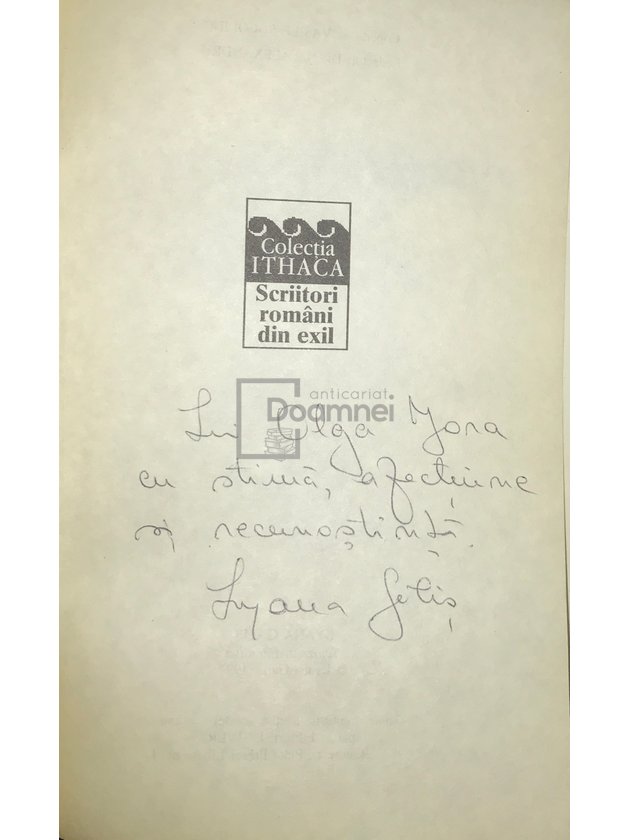 Colecția
ITHACA
Scriitori
români
din exil
anticariat
Doamnei
Lui Olga Jora
cu stimă, afecțiune
și recunoștință.